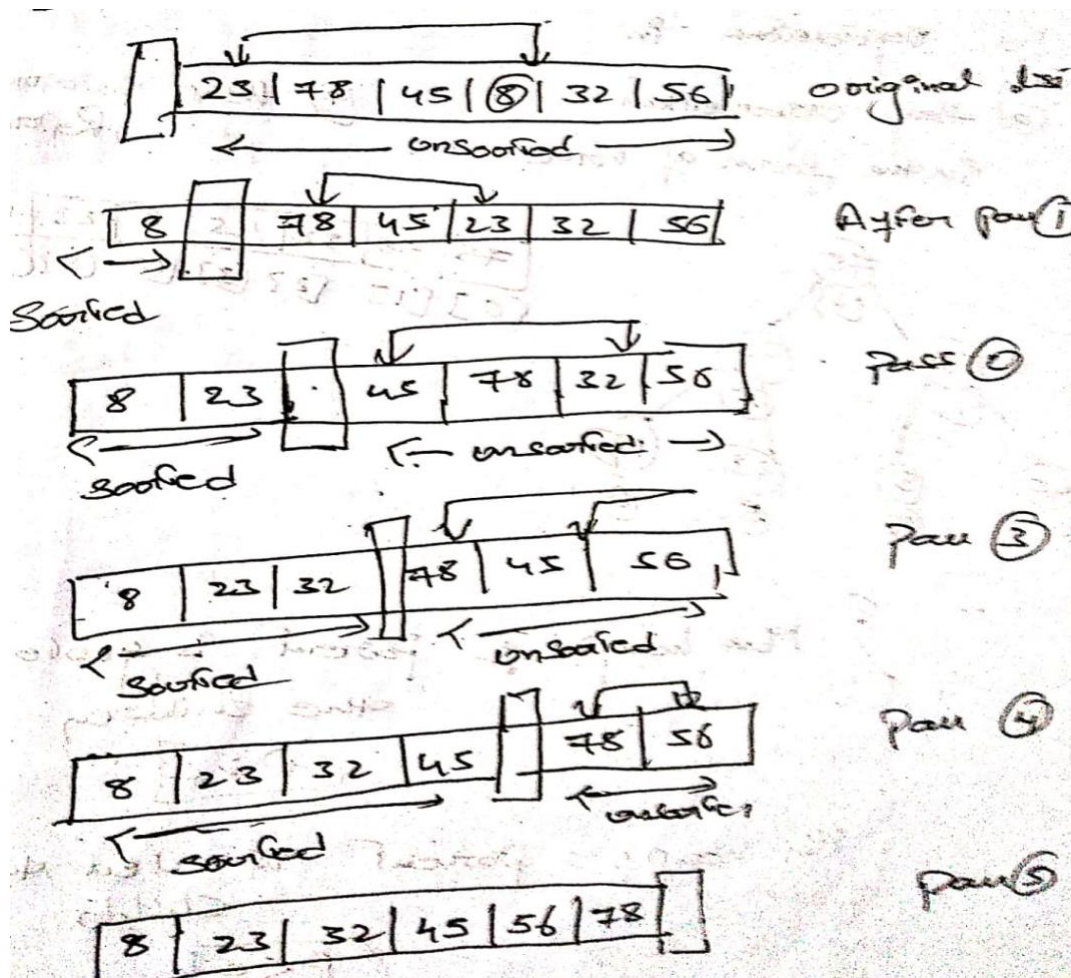 23 | 78 | 45 | 8 | 32 | 56 | original
unsorted
8 78 | 45 | 23 | 32 | 56 After pass 1
Sorted
8 | 23 | 45 | 78 | 32 | 56 pass 2
sorted unsorted
8 | 23 | 32 78 | 45 | 56 pass 3
sorted unsorted
8 | 23 | 32 | 45 78 | 56 pass 4
sorted unsorted
8 | 23 | 32 | 45 | 56 | 78 pass 5